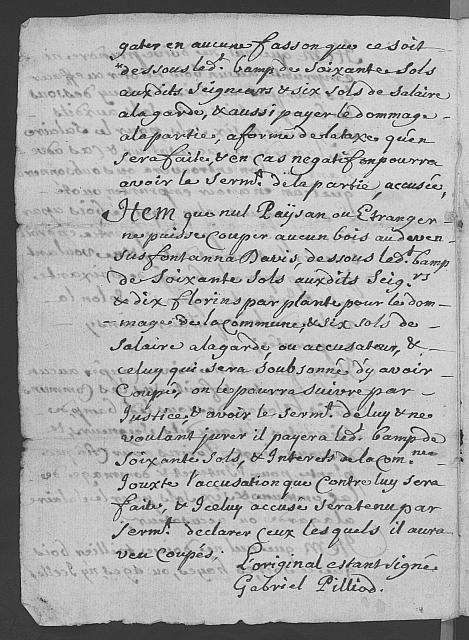 gater en aucune fasson que ce soit
dessous led.t bamp de Soixante Sols
auxdits Seigneurs & six sols de salaire
a la garde, & aussi payer le dommage
a la partie, a forme de la taxe qu'en
sera faite, & en cas negatif on pourra
avoir le Serm.t de la partie accusée,
Item que nul Paÿsan ou Etranger
ne puisse Couper aucun bois au deven
sus fontanna Davis, dessous led.t bamp
de Soixante Sols auxdits Seig.rs
& dix florins par plante pour le dom-
mage de la commune, & six sols de
salaire a la garde ou accusateur, &
celuy qui sera Soubsonné d'y avoir
Coupé, on le pourra suivre par
Justice, & avoir le Serm.t de luy & ne
voulant jurer il payera led.t bamp de
Soixante Sols, & Interets de la Com.ne
Jouxte l'accusation que Contre luy sera
faite, & Iceluy accusé sera tenu par
Serm.t declarer ceux lesquels il aura
veu Coupés;
L'original estant signé
Gabriel Pilliod.